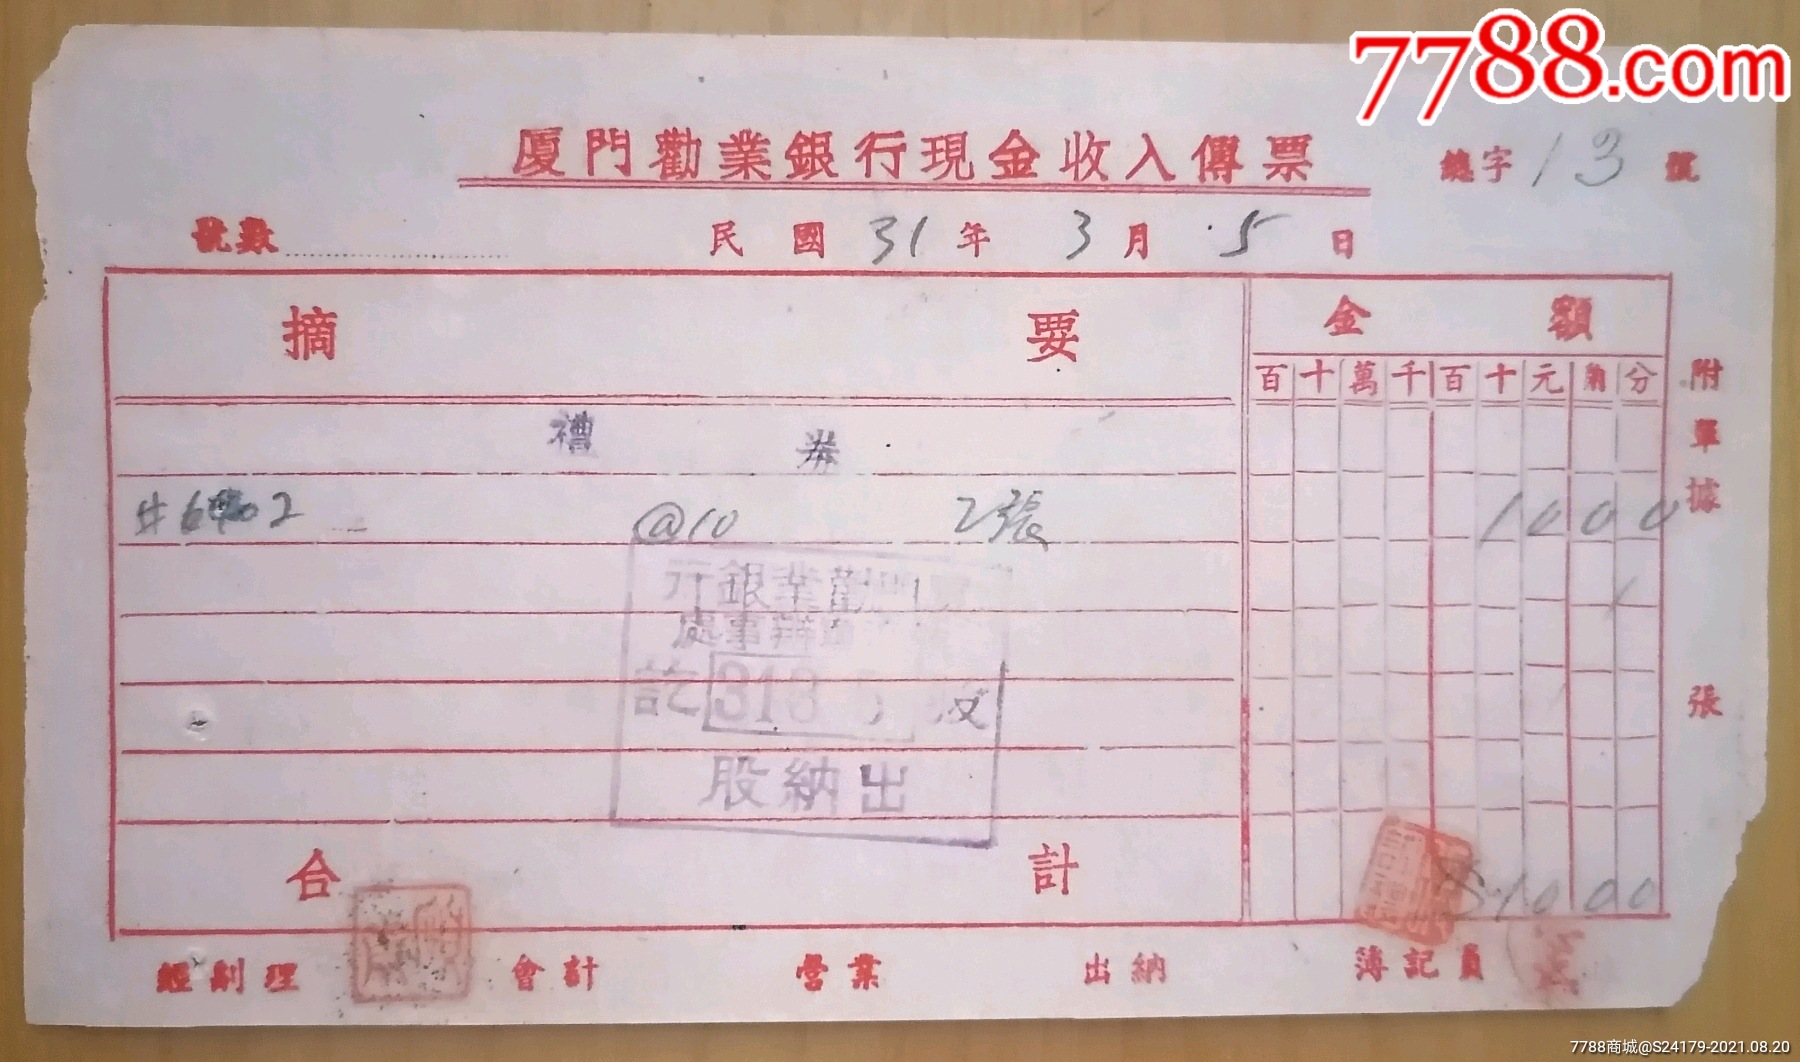 7788.com
厦門勸業銀行現金收入傳票
總字 13 號
號數
民國 31 年 3 月 5 日
摘要
金額
百 十 萬 千 百 十 元 角 分
附單據 張
禮券
@10 2張 1000
行銀業勸門厦
處事辦
訖 313 5 收
股納出
合計
$1000
經副理 會計 營業 出納 簿記員
7788商城@S24179-2021.08.20